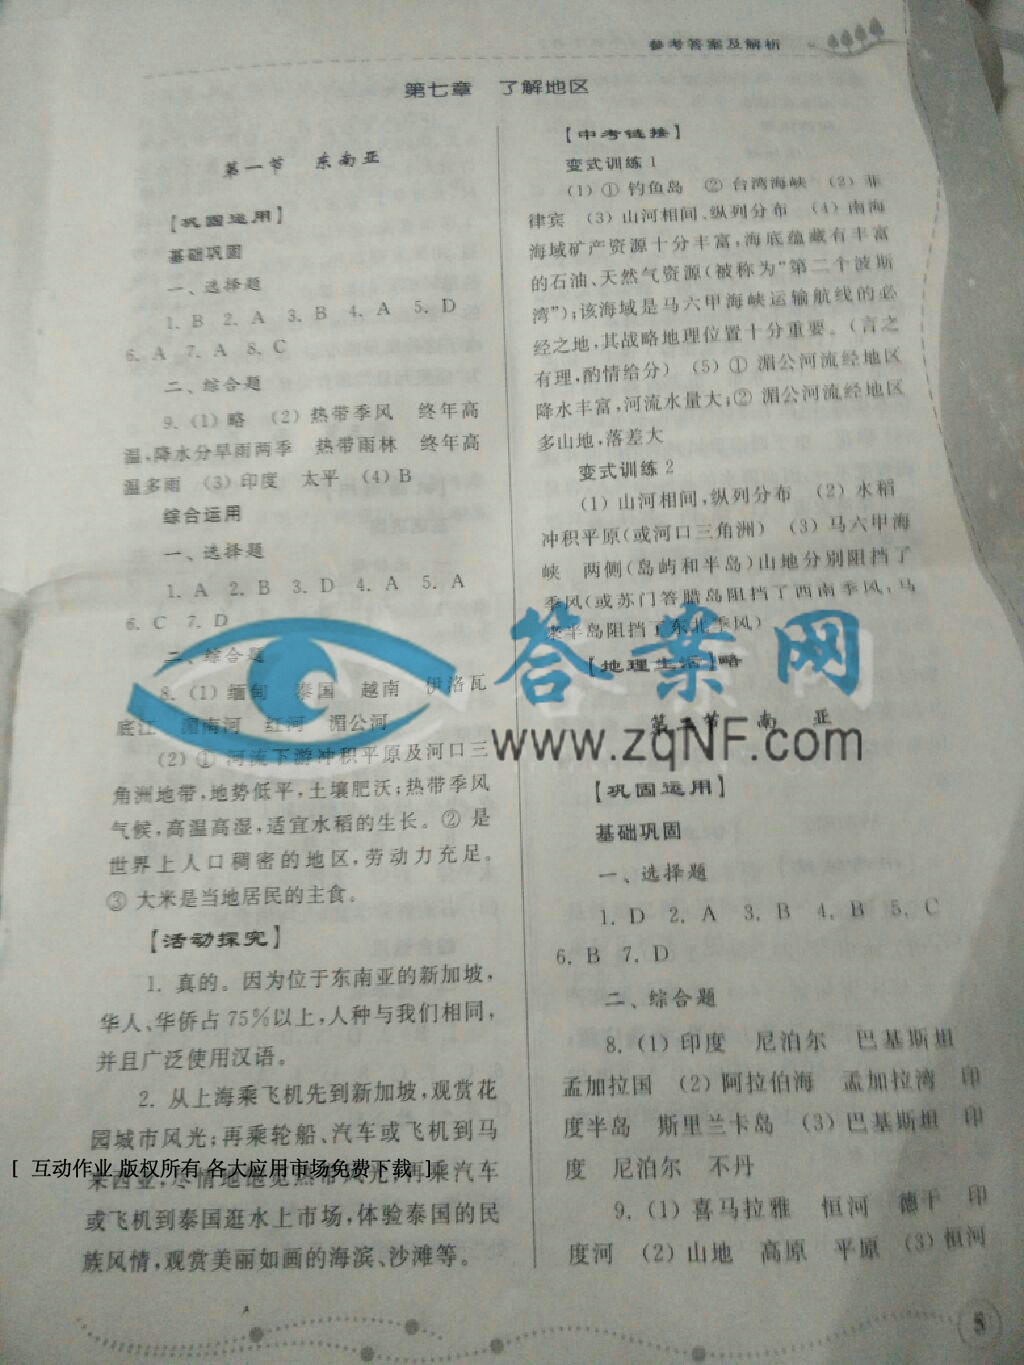 参考答案及解析
第七章 了解地区
第一节 东南亚
【巩固运用】
基础巩固
一、选择题
1. B 2. A 3. B 4. A 5. D
6. A 7. A 8. C
二、综合题
9. (1) 略 (2) 热带季风 终年高
温,降水分旱雨两季 热带雨林 终年高
温多雨 (3) 印度 太平 (4) B
综合运用
一、选择题
1. A 2. B 3. D 4. A 5. A
6. C 7. D
二、综合题
8. (1) 缅甸 泰国 越南 伊洛瓦
底江 湄南河 红河 湄公河
(2) ① 河流下游冲积平原及河口三
角洲地带,地势低平,土壤肥沃;热带季风
气候,高温高湿,适宜水稻的生长。② 是
世界上人口稠密的地区,劳动力充足。
③ 大米是当地居民的主食。
【活动探究】
1. 真的。因为位于东南亚的新加坡,
华人、华侨占75%以上,人种与我们相同,
并且广泛使用汉语。
2. 从上海乘飞机先到新加坡,观赏花
园城市风光;再乘轮船、汽车或飞机到马
来西亚,尽情地饱览热带风光;再乘汽车
或飞机到泰国逛水上市场,体验泰国的民
族风情,观赏美丽如画的海滨、沙滩等。
【中考链接】
变式训练1
(1) ① 钓鱼岛 ② 台湾海峡 (2) 菲
律宾 (3) 山河相间、纵列分布 (4) 南海
海域矿产资源十分丰富,海底蕴藏有丰富
的石油、天然气资源(被称为“第二个波斯
湾”);该海域是马六甲海峡运输航线的必
经之地,其战略地理位置十分重要。(言之
有理,酌情给分) (5) ① 湄公河流经地区
降水丰富,河流水量大;② 湄公河流经地区
多山地,落差大
变式训练2
(1) 山河相间,纵列分布 (2) 水稻
冲积平原(或河口三角洲) (3) 马六甲海
峡 两侧(岛屿和半岛)山地分别阻挡了
季风(或苏门答腊岛阻挡了西南季风,马
来半岛阻挡了东北季风)
【地理生活】略
第二节 南 亚
【巩固运用】
基础巩固
一、选择题
1. D 2. A 3. B 4. B 5. C
6. B 7. D
二、综合题
8. (1) 印度 尼泊尔 巴基斯坦
孟加拉国 (2) 阿拉伯海 孟加拉湾 印
度半岛 斯里兰卡岛 (3) 巴基斯坦 印
度 尼泊尔 不丹
9. (1) 喜马拉雅 恒河 德干 印
度河 (2) 山地 高原 平原 (3) 恒河
5
答案网
www.zqNF.com
[ 互动作业 版权所有 各大应用市场免费下载 ]